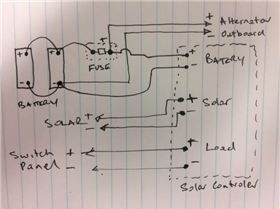 + Alternator
- Outboard
+ - + -
FUSE
+ BATERY
-
BATTERY
+ Solar
-
SOLAR + -
Switch + + Load
Panel - -
Solar Controler